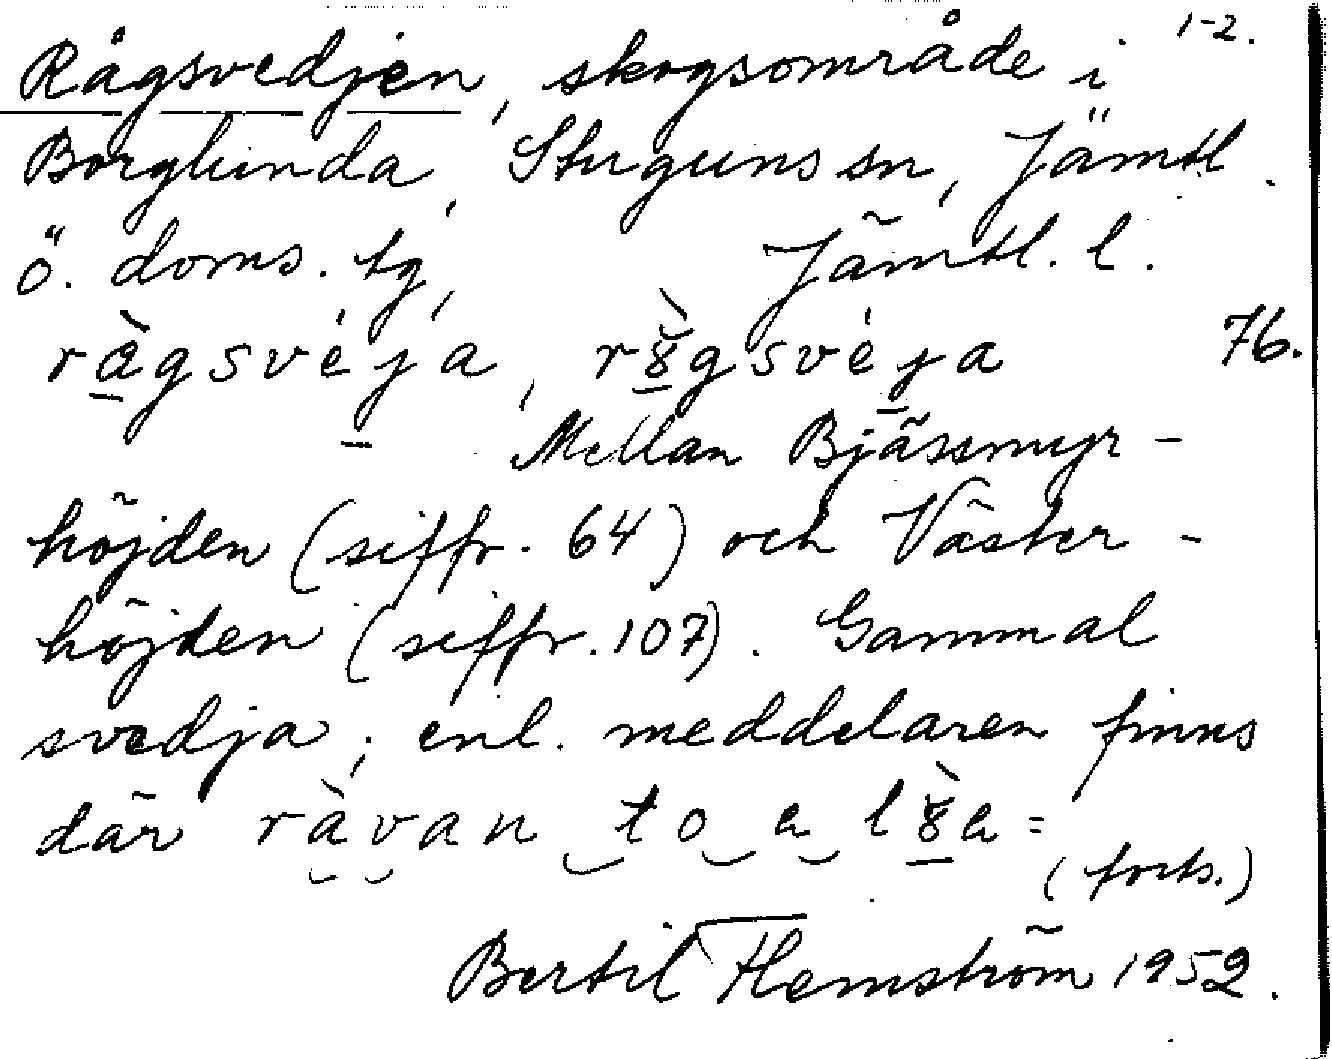 1-2.
Rågsvedjen, skogsområde i
Borglunda, Stuguns sn, Jämtl.
ö. doms. tg, Jämtl. l.
ràgsvéja, r8̀gsvéja 76.
Mellan Bjässmyr-
höjden (siffr. 64) och Väster-
höjden (siffr. 107). Gammal
svedja; enl. meddelaren finns
där ràvan to a l8̀a=
(forts.)
Bertil Hemström 1952.